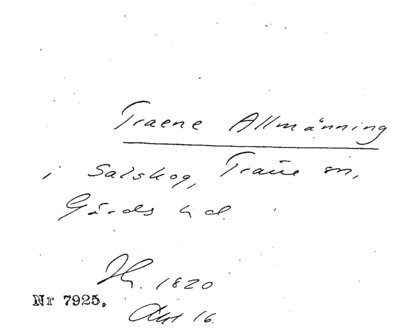 Traene Allmänning
i Salskog, Träne sn,
Gärds hd.
Hr. 1820
Nr 7925.
Akt 16.